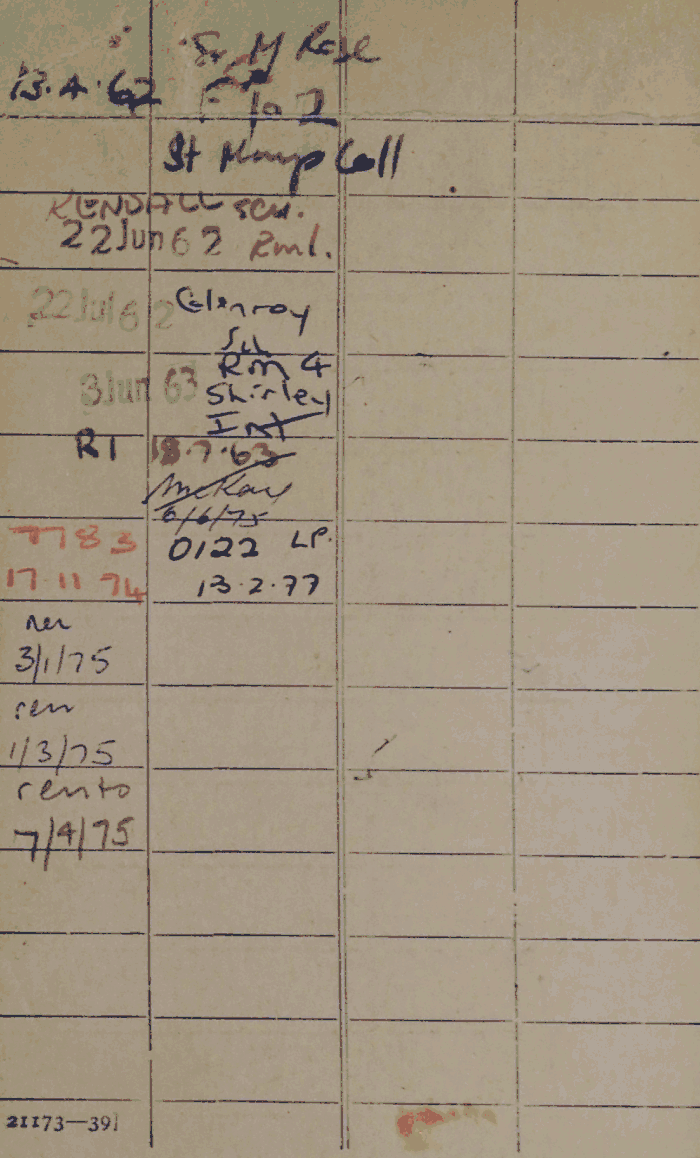 Sr M Rose
13.4.62 F 1 to 2
St Marys Coll
KENDALL SCH.
22 Jun 62 Rm 1.
22 Jul 62 Glenroy
Sch
Rm 4
3 Jun 63 Shirley
Int
R1 18.7.63
McKay
6/6/75
7783 0122 LP.
17 11 74 13.2.77
ren
3/1/75
ren
1/3/75
ren to
7/4/75
21173—39J